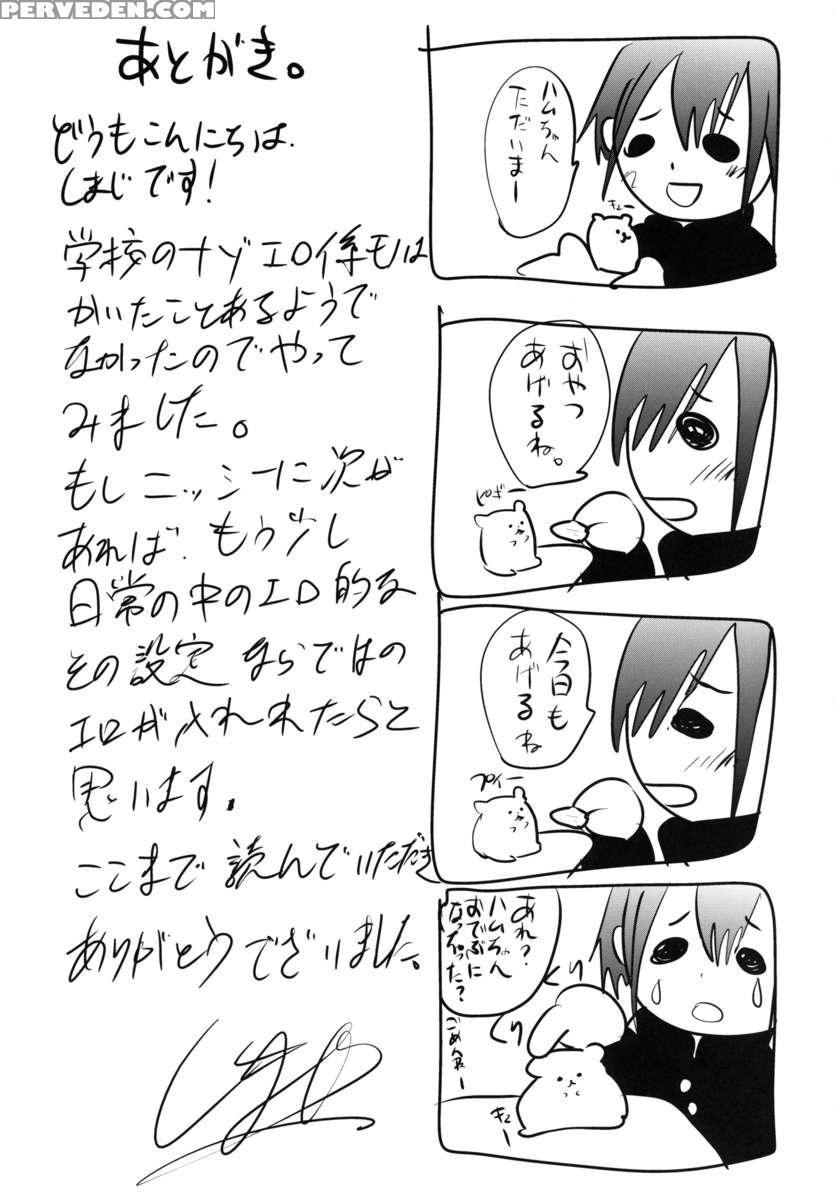 PERVEDEN.COM
あとがき。
どうもこんにちは
しまじです!
学校のナゾエロ係モノは
かいたことあるようで
なかったのでやって
みました。
もしニッシーに次が
あれば、もう少し
日常の中のエロ的な
その設定ならではの
エロが入れれたらと
思います。
ここまで読んでいただき
ありがとうございました。
ハムちゃん
ただいまー
キュー
おやつ
あげるね。
ピギー
今日も
あげるね
プイー
あれ?
ハムちゃん
おでぶに
なっちゃった?
くり
くり
キュー